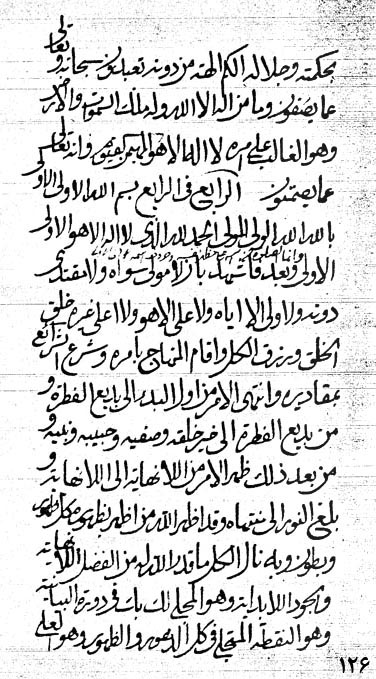 بحكمته وجلاله الكم الهته من دونه تعبدون سبحانه وتعالى
عما يصفون وما من اله الا الله وله ملك السموات والارض
وهو الغالب على امره لا اله الا هو المهيمن القيوم وانه تعالى
عما يصفون الرابع فى الرابع بسم الله الاولى الاولى
بالله الله الولى الولى الحمد لله الذى لا اله الا هو الاولى
الاولى وبعد فاشهد بان لا مولى سواه ولا مقتدى
دونه ولا ولى الا اياه ولا على الا هو ولا اعلى غيره خلق
الخلق ورزق الكل واقام المنهاج بامره وشرع الشرائع
بمقاديره وانتهى الامر من اول البدء الى بديع الفطرة و
من بديع الفطرة الى خير خلقه وصفيه وحبيبه ونبيه و
من بعد ذلك ظهر الامر من اللانهاية الى اللانهاية و
بلغ النور الى منتهاه وقد اظهر الله من اظهر بظهوره كل ظهور
وبطون وبه نال الكل ما قدر الله له من الفضل اللانهاية
والجود اللابداية وهو المجلى لك باب فى دورة البيانية
وهو النقطة المتجلى فى كل الدهور والظهور وهو العلى
١٢۶